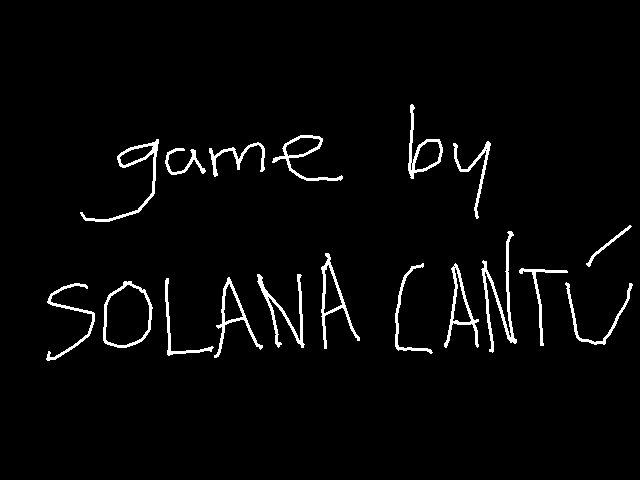 game by
SOLANA CANTÚ